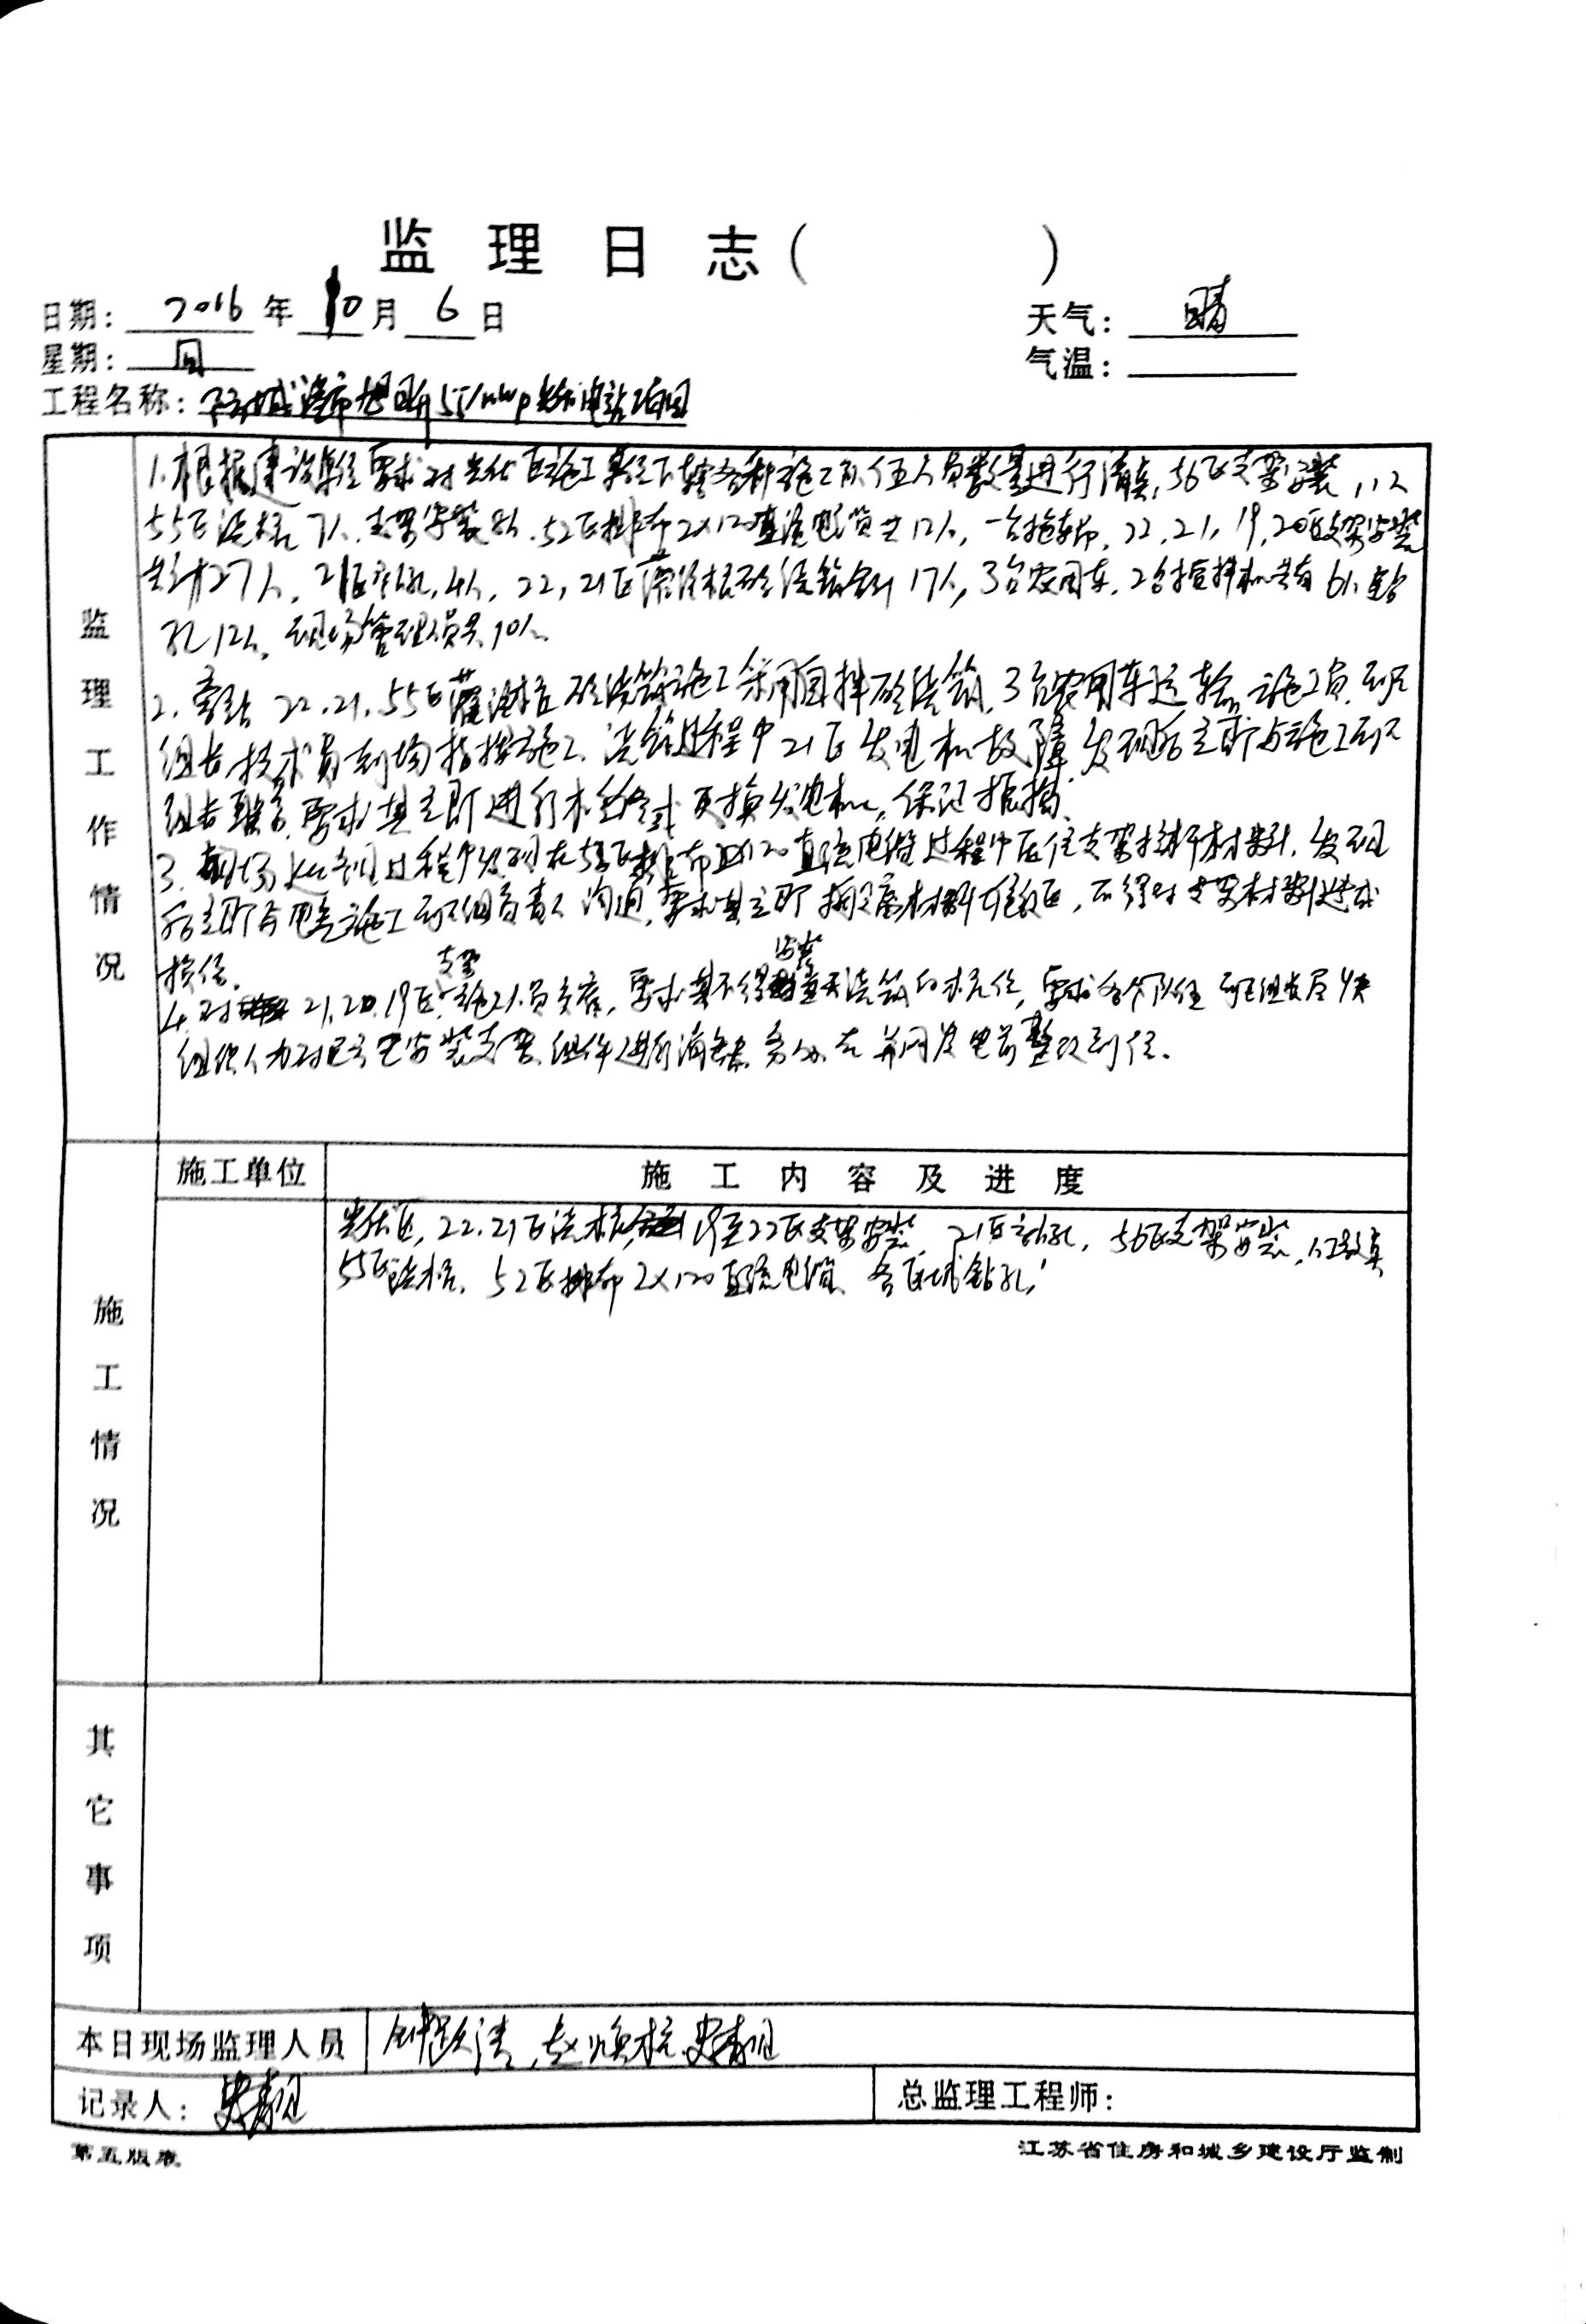 监理日志( )
日期: 2016 年 10 月 6 日
天气: 晴
星期: 四
气温:
工程名称: 电站项目
监理工作情况
1.根据建设单位要求对光伏区施工单位下辖各种施工队伍人员数量进行清点,56区支架安装
55区浇桩7人.支架安装8人.52区排布2×120直流电缆共12人,一台拖车,22,21,19,20区支架安装
共计27人,21区 4人,22,21区灌注桩砼浇筑合计17人,3台农用车.2台搅拌机共有6人.钻
孔12人.现场管理人员共10人.
2.旁站22.21.55区灌注桩砼浇筑施工采用自拌砼浇筑.3台农用车运输.施工员.班
组长.技术员到场指挥施工.浇筑过程中21区发电机故障.发现后立即与施工班
组长联系.要求其立即进行 更换发电机.保证振捣.
3.现场 过程中发现在52区排布2×120直流电缆过程中压住支架 材料.发现
后立即与电气施工班组负责人沟通,要求其立即 材料 ,不得对支架材料造成
损伤.
4.对 21,20,19区支架施工人员交底,要求其不得安装当天浇筑的桩位,要求各个队伍班组长尽快
组织人力对已安装支架.组件进行消缺.务必在并网发电前整改到位.
施工单位 施工内容及进度
施工情况
光伏区,22.21区浇桩, 19至22区支架安装,21区 孔,56区支架安装,
55区浇桩.52区排布2×120直流电缆、各区域钻孔;
其它事项
本日现场监理人员
记录人:
总监理工程师:
第五版表
江苏省住房和城乡建设厅监制